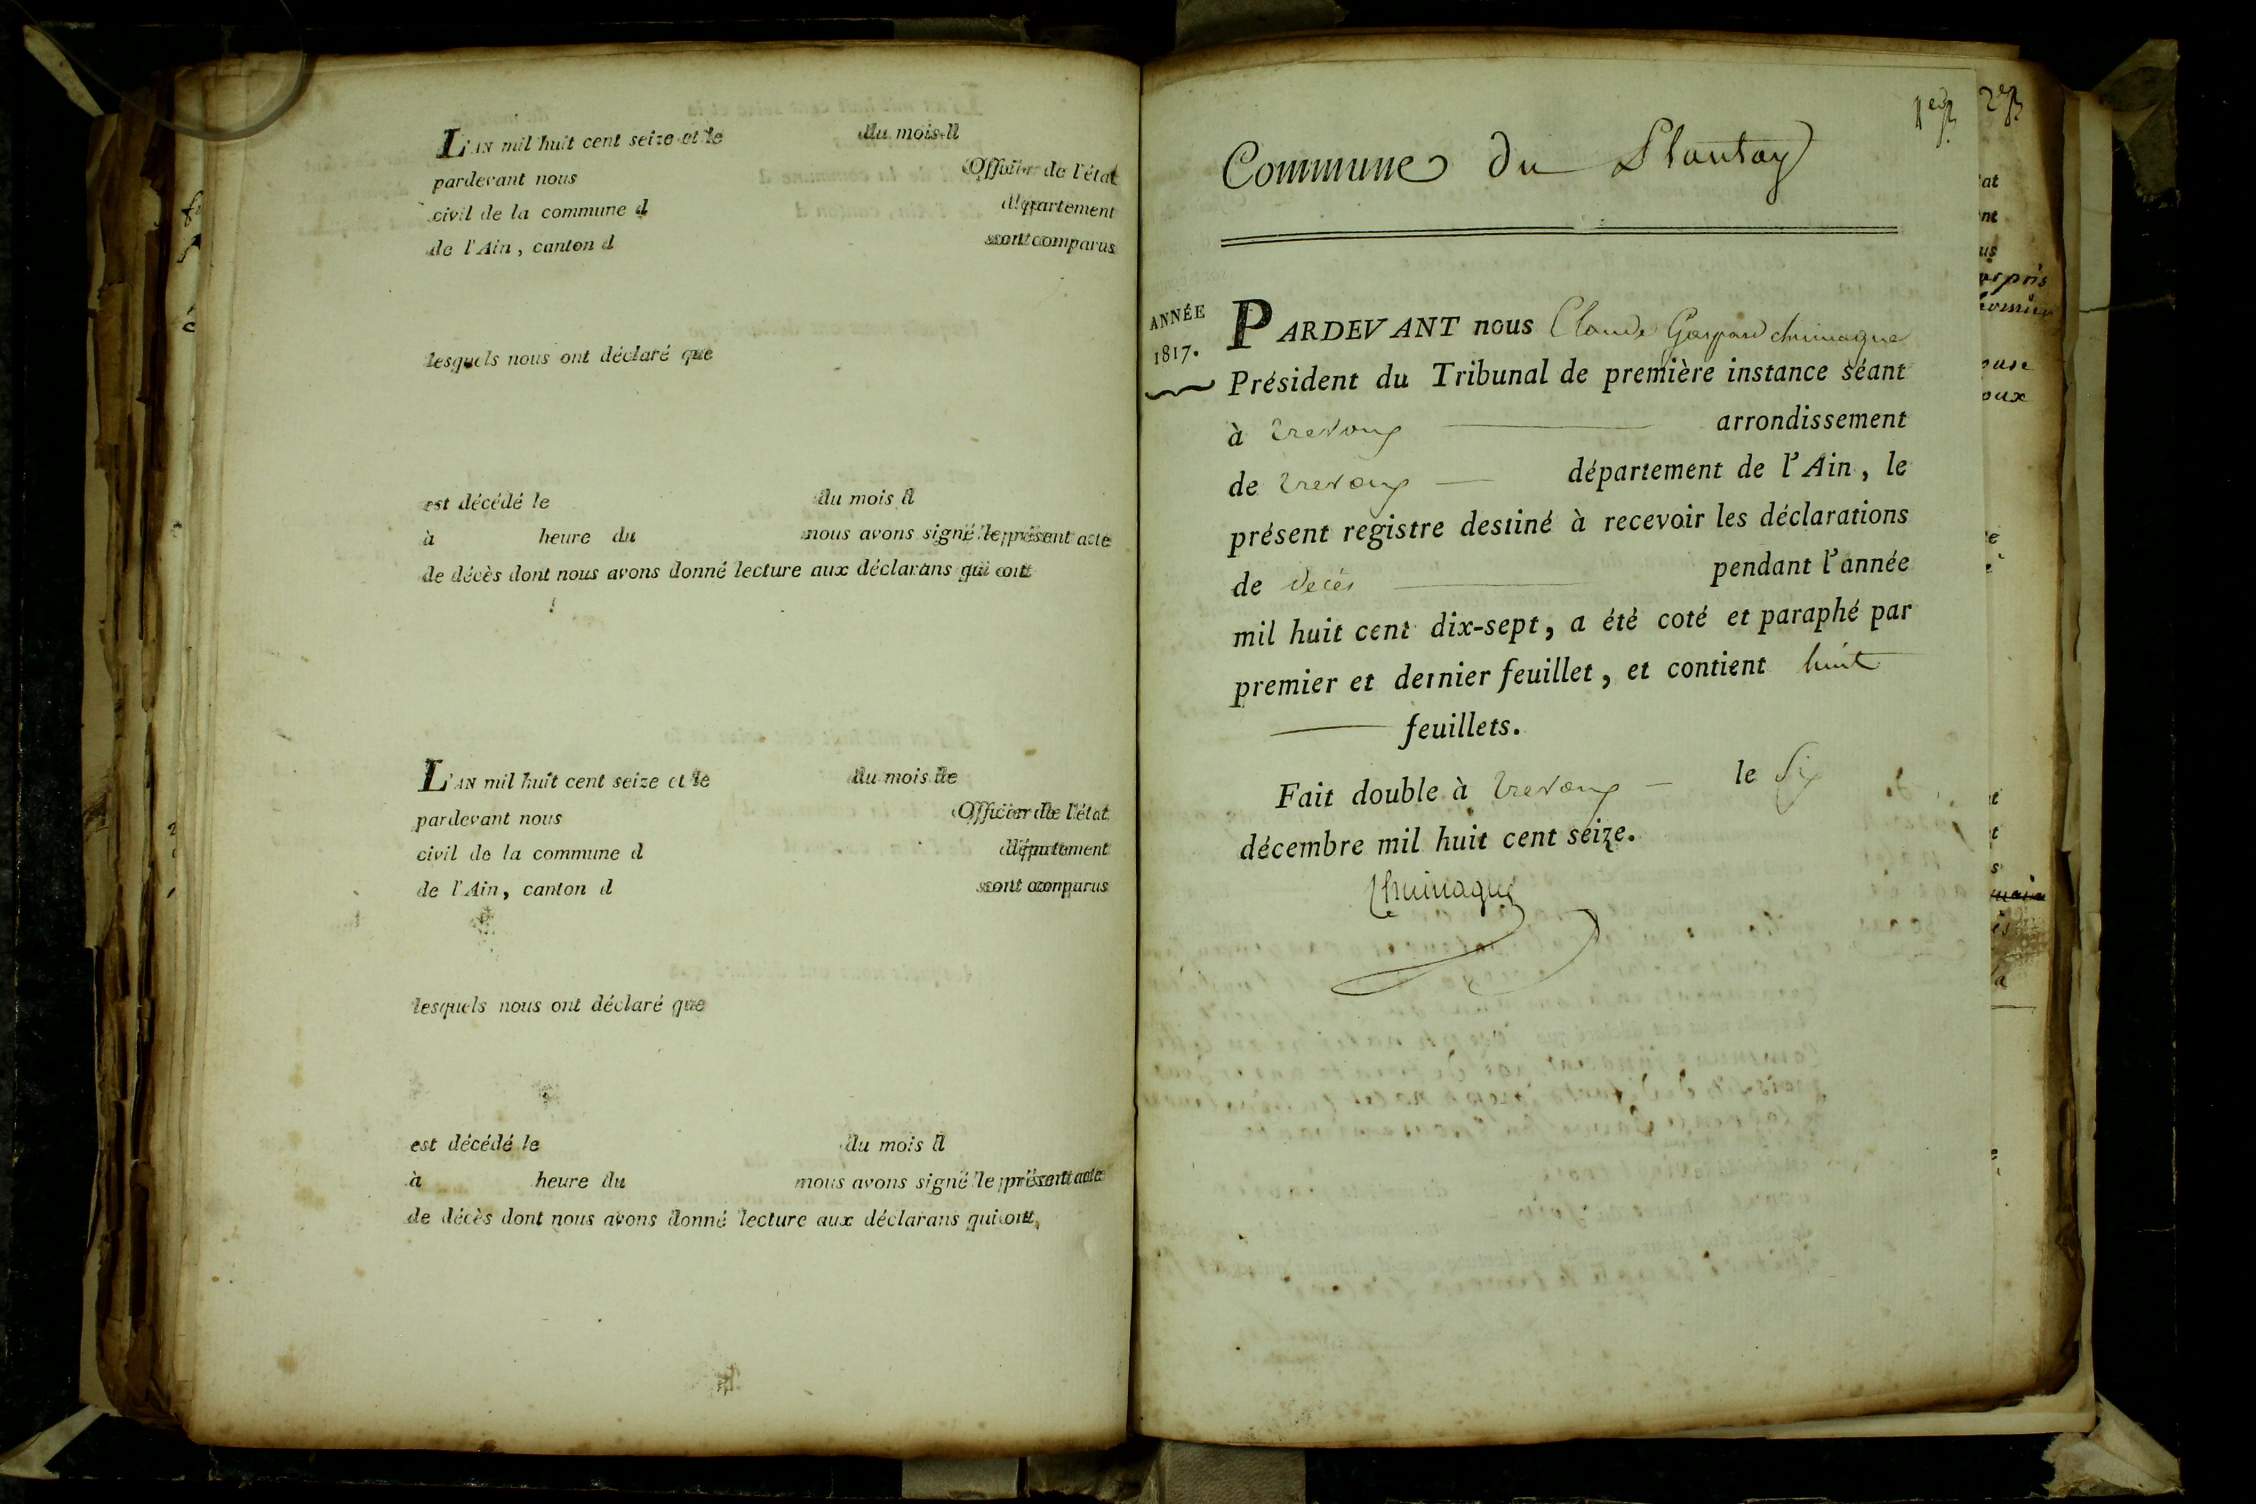 L'AN mil huit cent seize et le du mois d
pardevant nous Officier de l'état
civil de la commune d département
de l'Ain, canton d sont comparus
lesquels nous ont déclaré que
est décédé le du mois d
à heure du nous avons signé le présent acte
de décès dont nous avons donné lecture aux déclarans qui ont
L'AN mil huit cent seize et le du mois de
pardevant nous Officier de l'état
civil de la commune d département
de l'Ain, canton d sont comparus
lesquels nous ont déclaré que
est décédé le du mois d
à heure du nous avons signé le présent acte
de décès dont nous avons donné lecture aux déclarans qui ont,
1er 2e
Commune du Plantay
ANNÉE
1817.
PARDEVANT nous Claude Gaspard
Président du Tribunal de première instance séant
à trevoux arrondissement
de trevoux département de l'Ain, le
présent registre destiné à recevoir les déclarations
de deces pendant l'année
mil huit cent dix-sept, a été coté et paraphé par
premier et dernier feuillet, et contient huit
feuillets.
Fait double à trevoux le six
décembre mil huit cent seize.